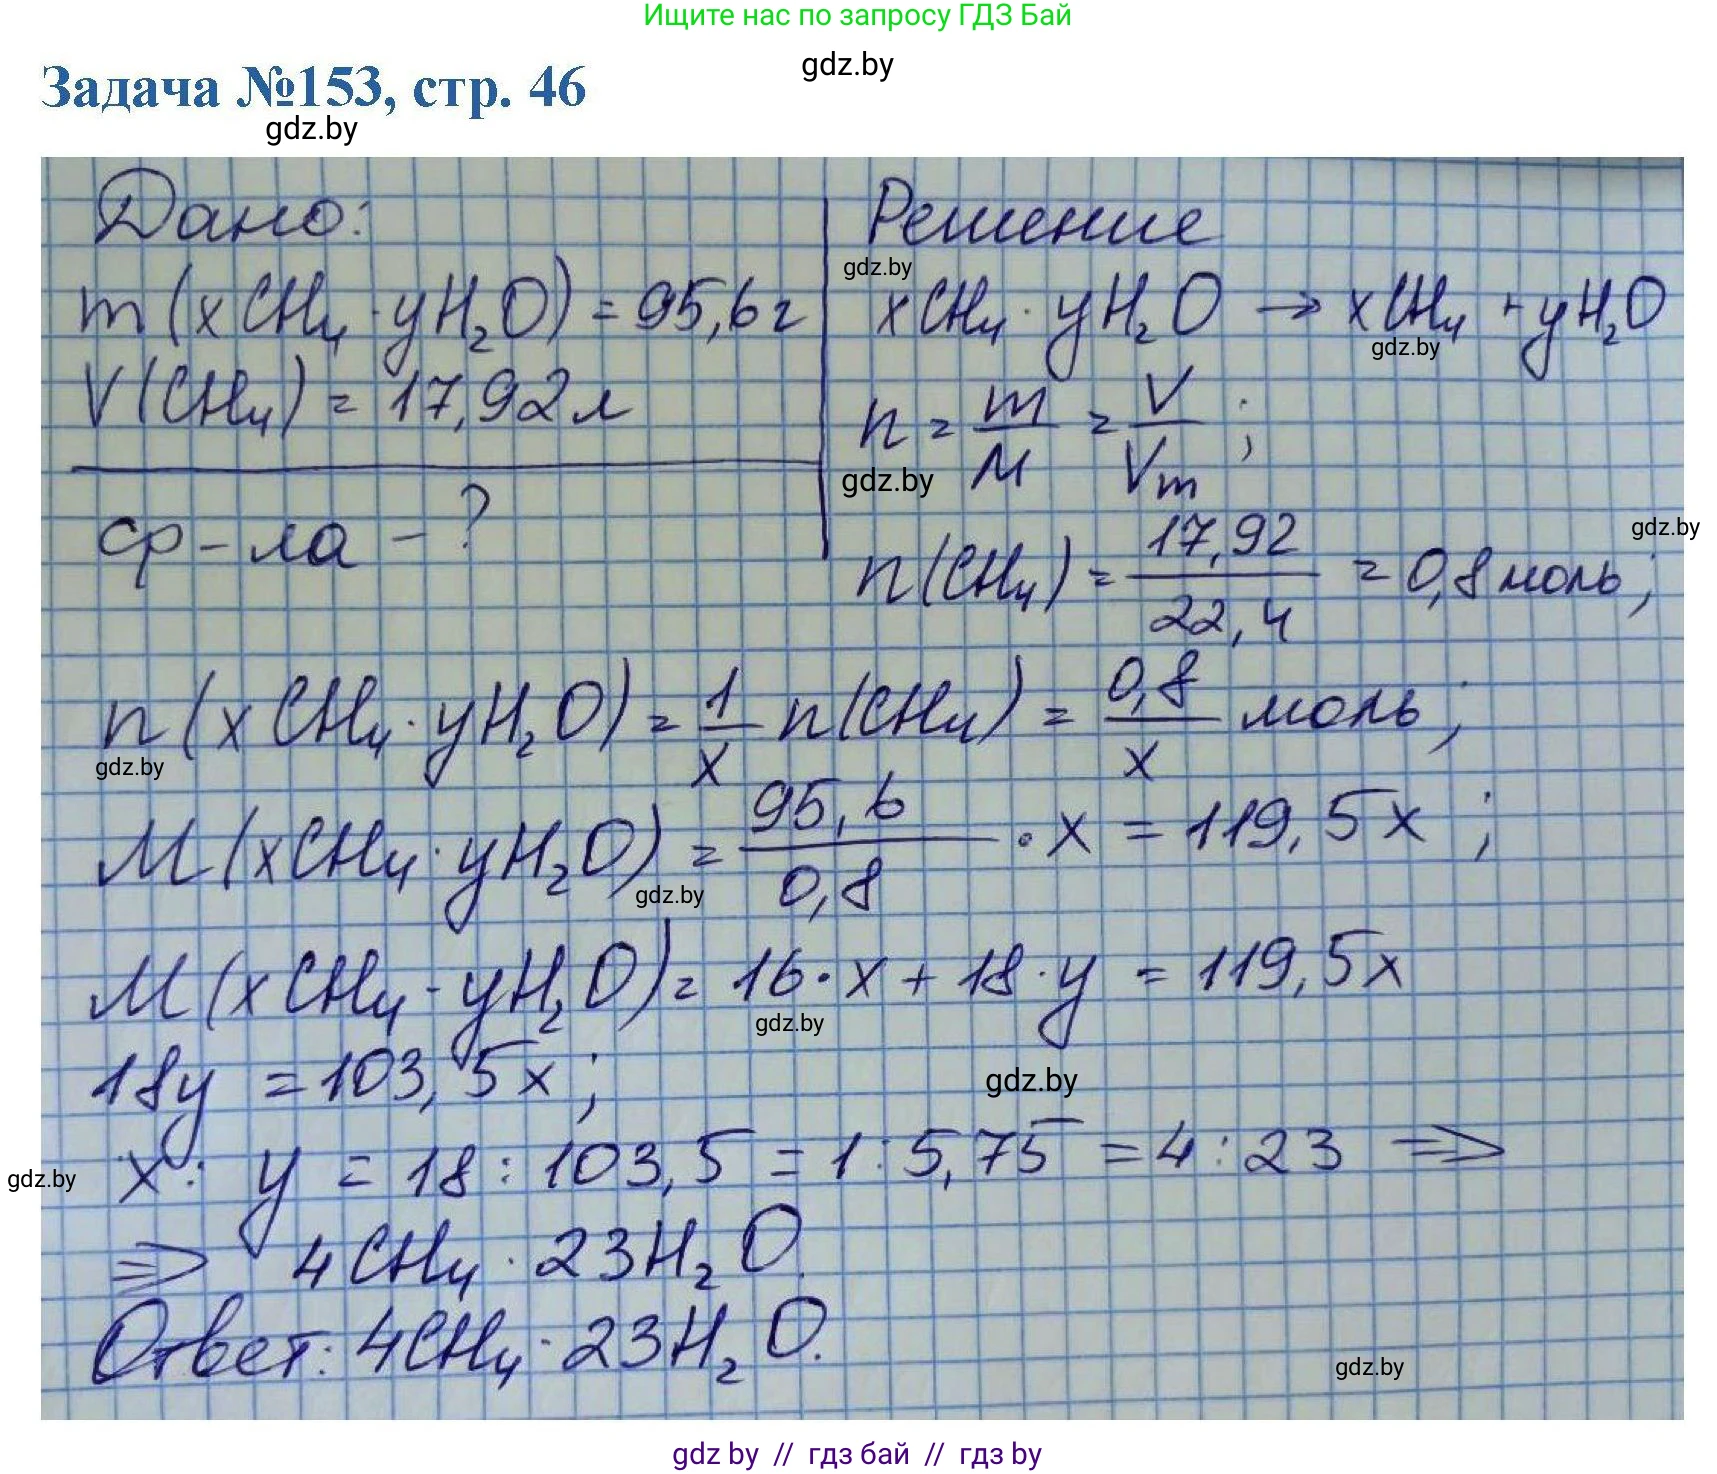 Ищите нас по запросу ГДЗ Бай
gdz.by
Задача №153, стр. 46
gdz.by
Дано:
m(xCH₄·yH₂O) = 95,6г
V(CH₄) = 17,92л
ср-ла - ?
Решение
gdz.by
xCH₄·yH₂O → xCH₄ + yH₂O
gdz.by
n = m/M = V/Vm ;
gdz.by
gdz.by
n(CH₄) = 17,92/22,4 = 0,8моль;
n(xCH₄·yH₂O) = 1/x n(CH₄) = 0,8/x моль;
gdz.by
M(xCH₄·yH₂O) = 95,6/0,8 · x = 119,5x ;
gdz.by
M(xCH₄·yH₂O) = 16·x + 18·y = 119,5x
gdz.by
18y = 103,5x;
gdz.by
x : y = 18 : 103,5 = 1 : 5,75 = 4 : 23 ⇒
gdz.by
⇒ 4CH₄·23H₂O.
Ответ: 4CH₄·23H₂O.
gdz.by
gdz by // гдз бай // гдз by